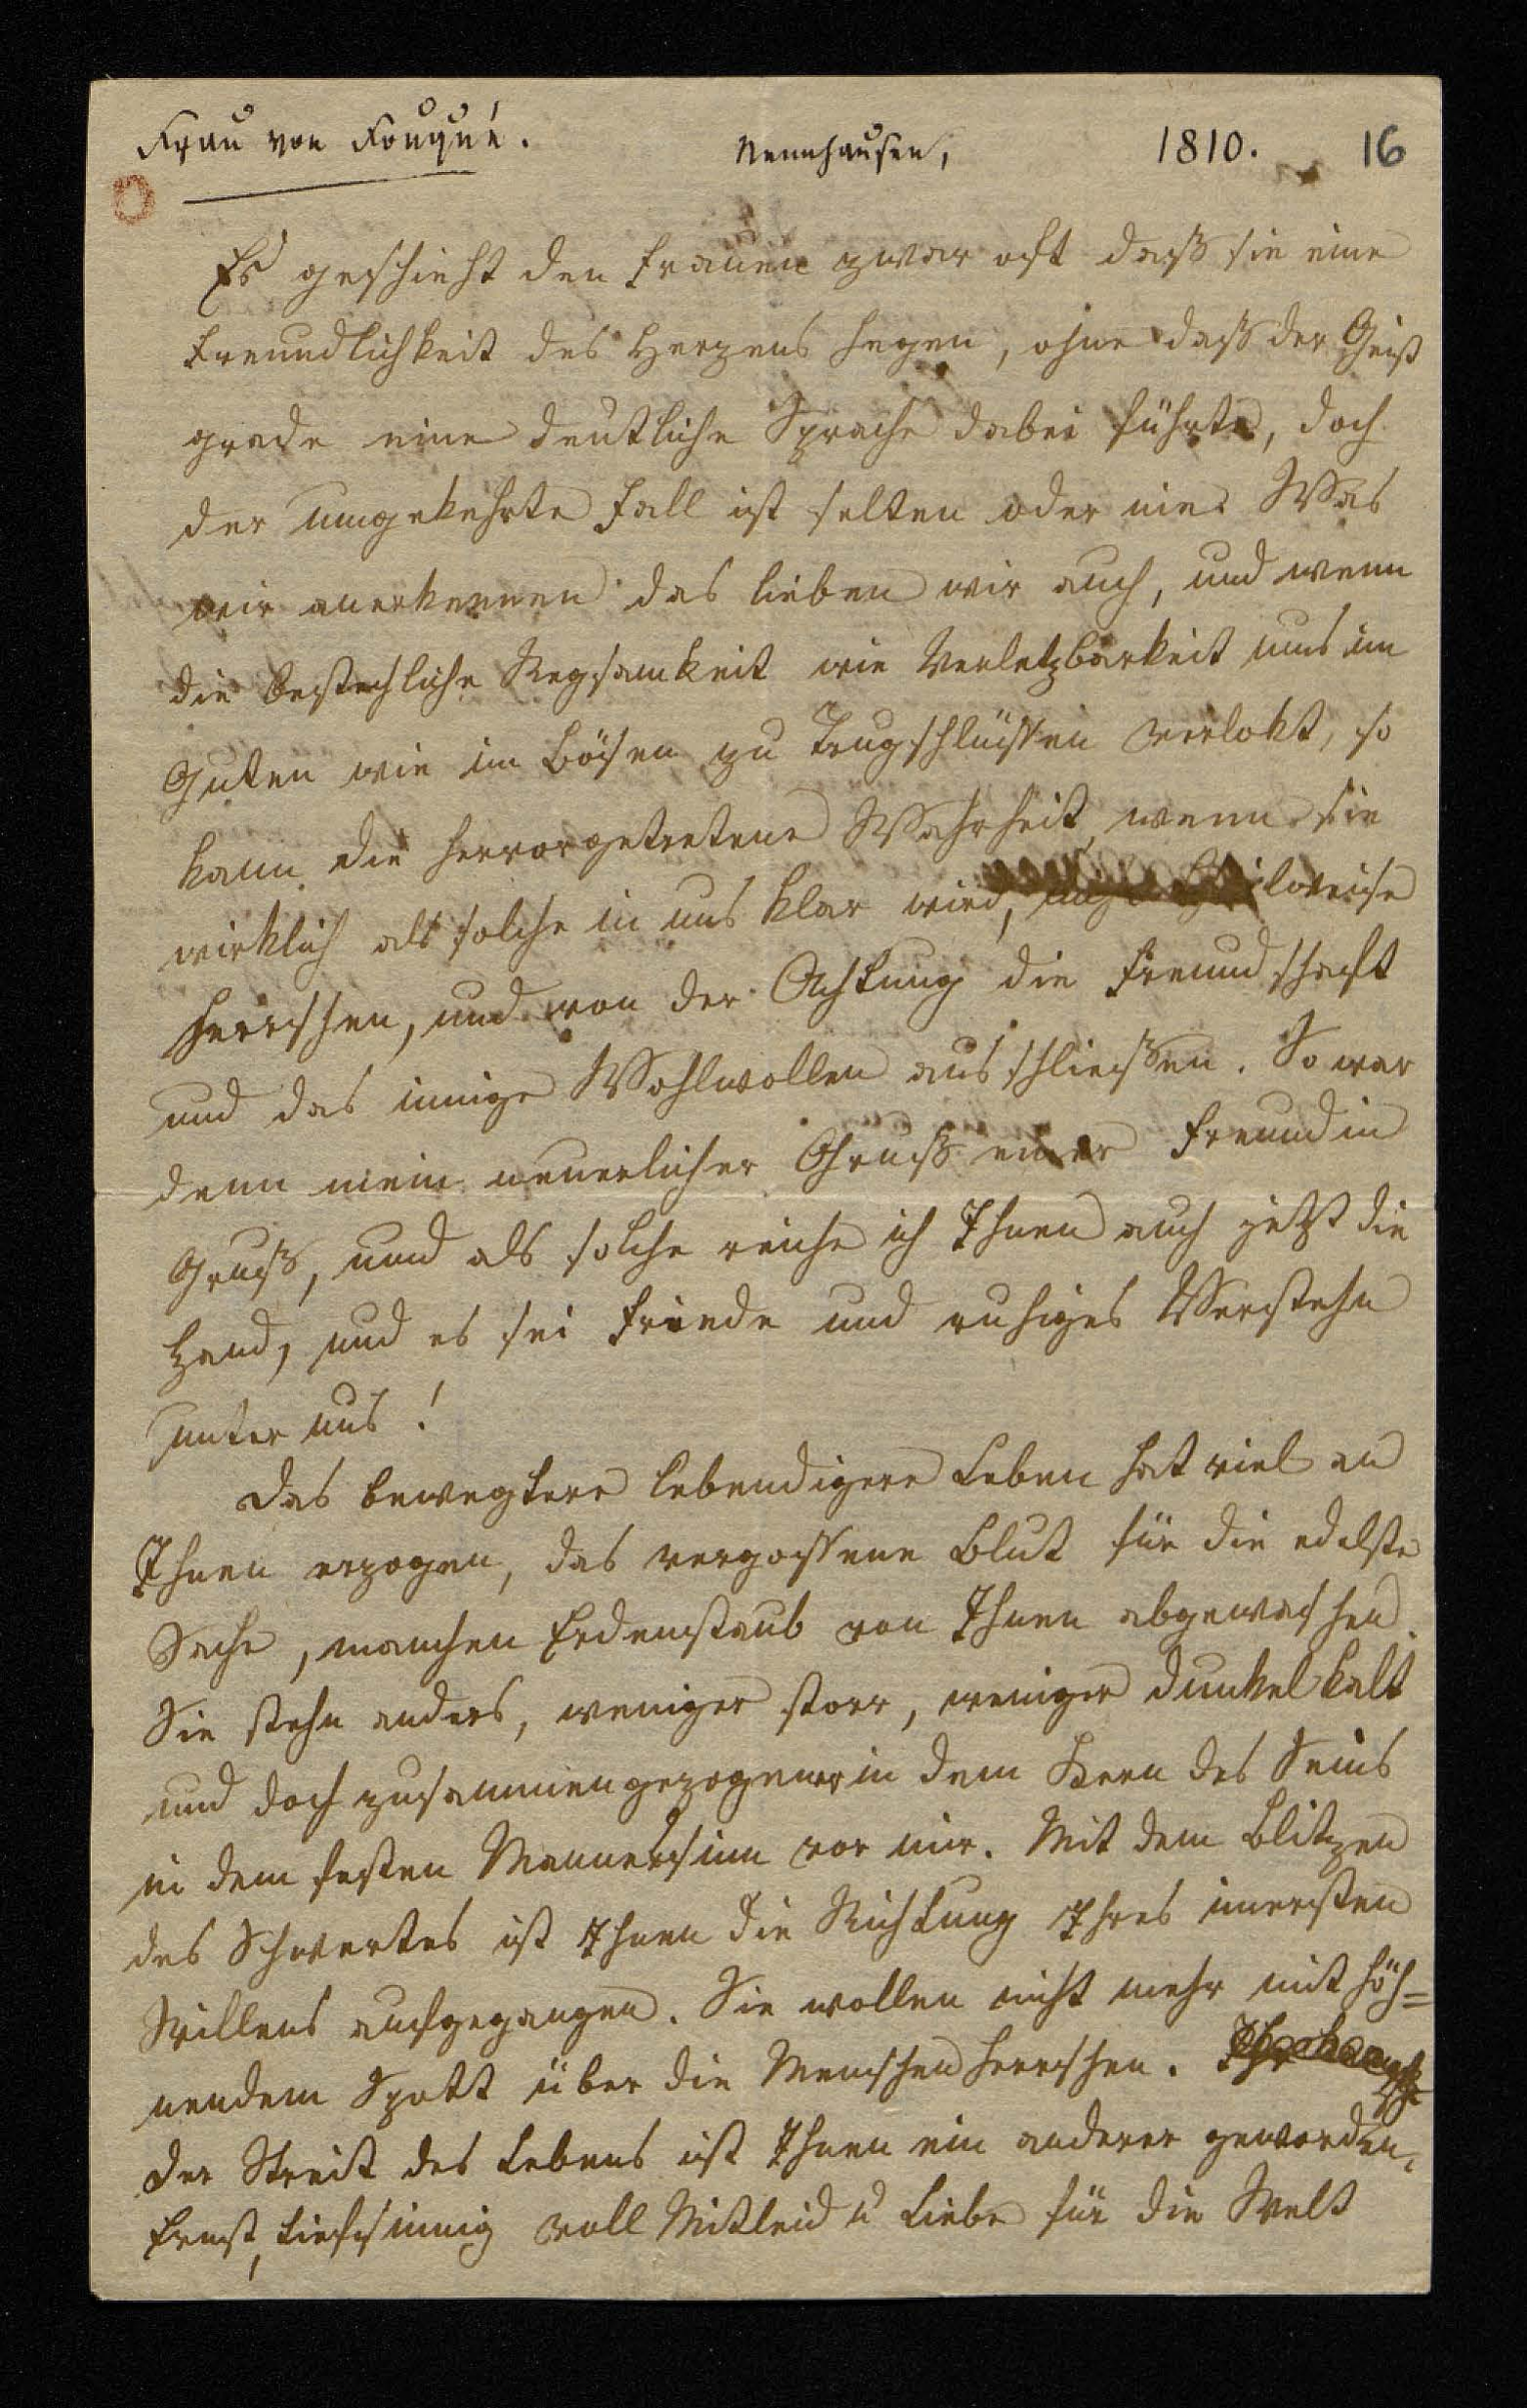 Frau von Fouqué. Nennhausen, 1810. 16
Es geschieht den Frauen zwar oft daß sie eine
Freundlichkeit des Herzens hegen, ohne daß der Geist
grade eine deutliche Sprache dabei führte, doch
der umgekehrte Fall ist selten oder nie. Was
wir anerkennen das lieben wir auch, und wenn
die bestechliche Regsamkeit wie Verletzbarkeit uns im
Guten wie im Bösen zu Trugschlüssen verlokt, so
kann die hervorgetretene Wahrheit, wenn sie
wirklich als solche in uns klar wird, nicht theilweise
herrschen, und von der Achtung die Freundschaft
und das innige Wohlwollen ausschliessen. So war
denn mein neuerlicher Gruß einer Freundin
Gruß, und als solche reiche ich Ihnen auch jetzt die
Hand, und es sei Friede und ruhiges Verstehn
unter uns!
Das bewegtere lebendigere Leben hat viel an
Ihnen erzogen, das vergossene Blut für die edelste
Sache, manchen Erdenstaub von Ihnen abgewaschen.
Sie stehn anders, weniger starr, weniger dunkel kalt
und doch zusammengezogener in dem Kern des Seins
in dem festen Mannessinn vor mir. Mit dem Blitzen
des Schwertes ist Ihnen die Richtung Ihres innersten
Willens aufgegangen. Sie wollen nicht mehr mit höh=
nendem Spott über die Menschen herrschen. Ihr
der Streit des Lebens ist Ihnen ein anderer geworden,
Ernst, tiefsinnig voll Mitleid u Liebe für die Welt